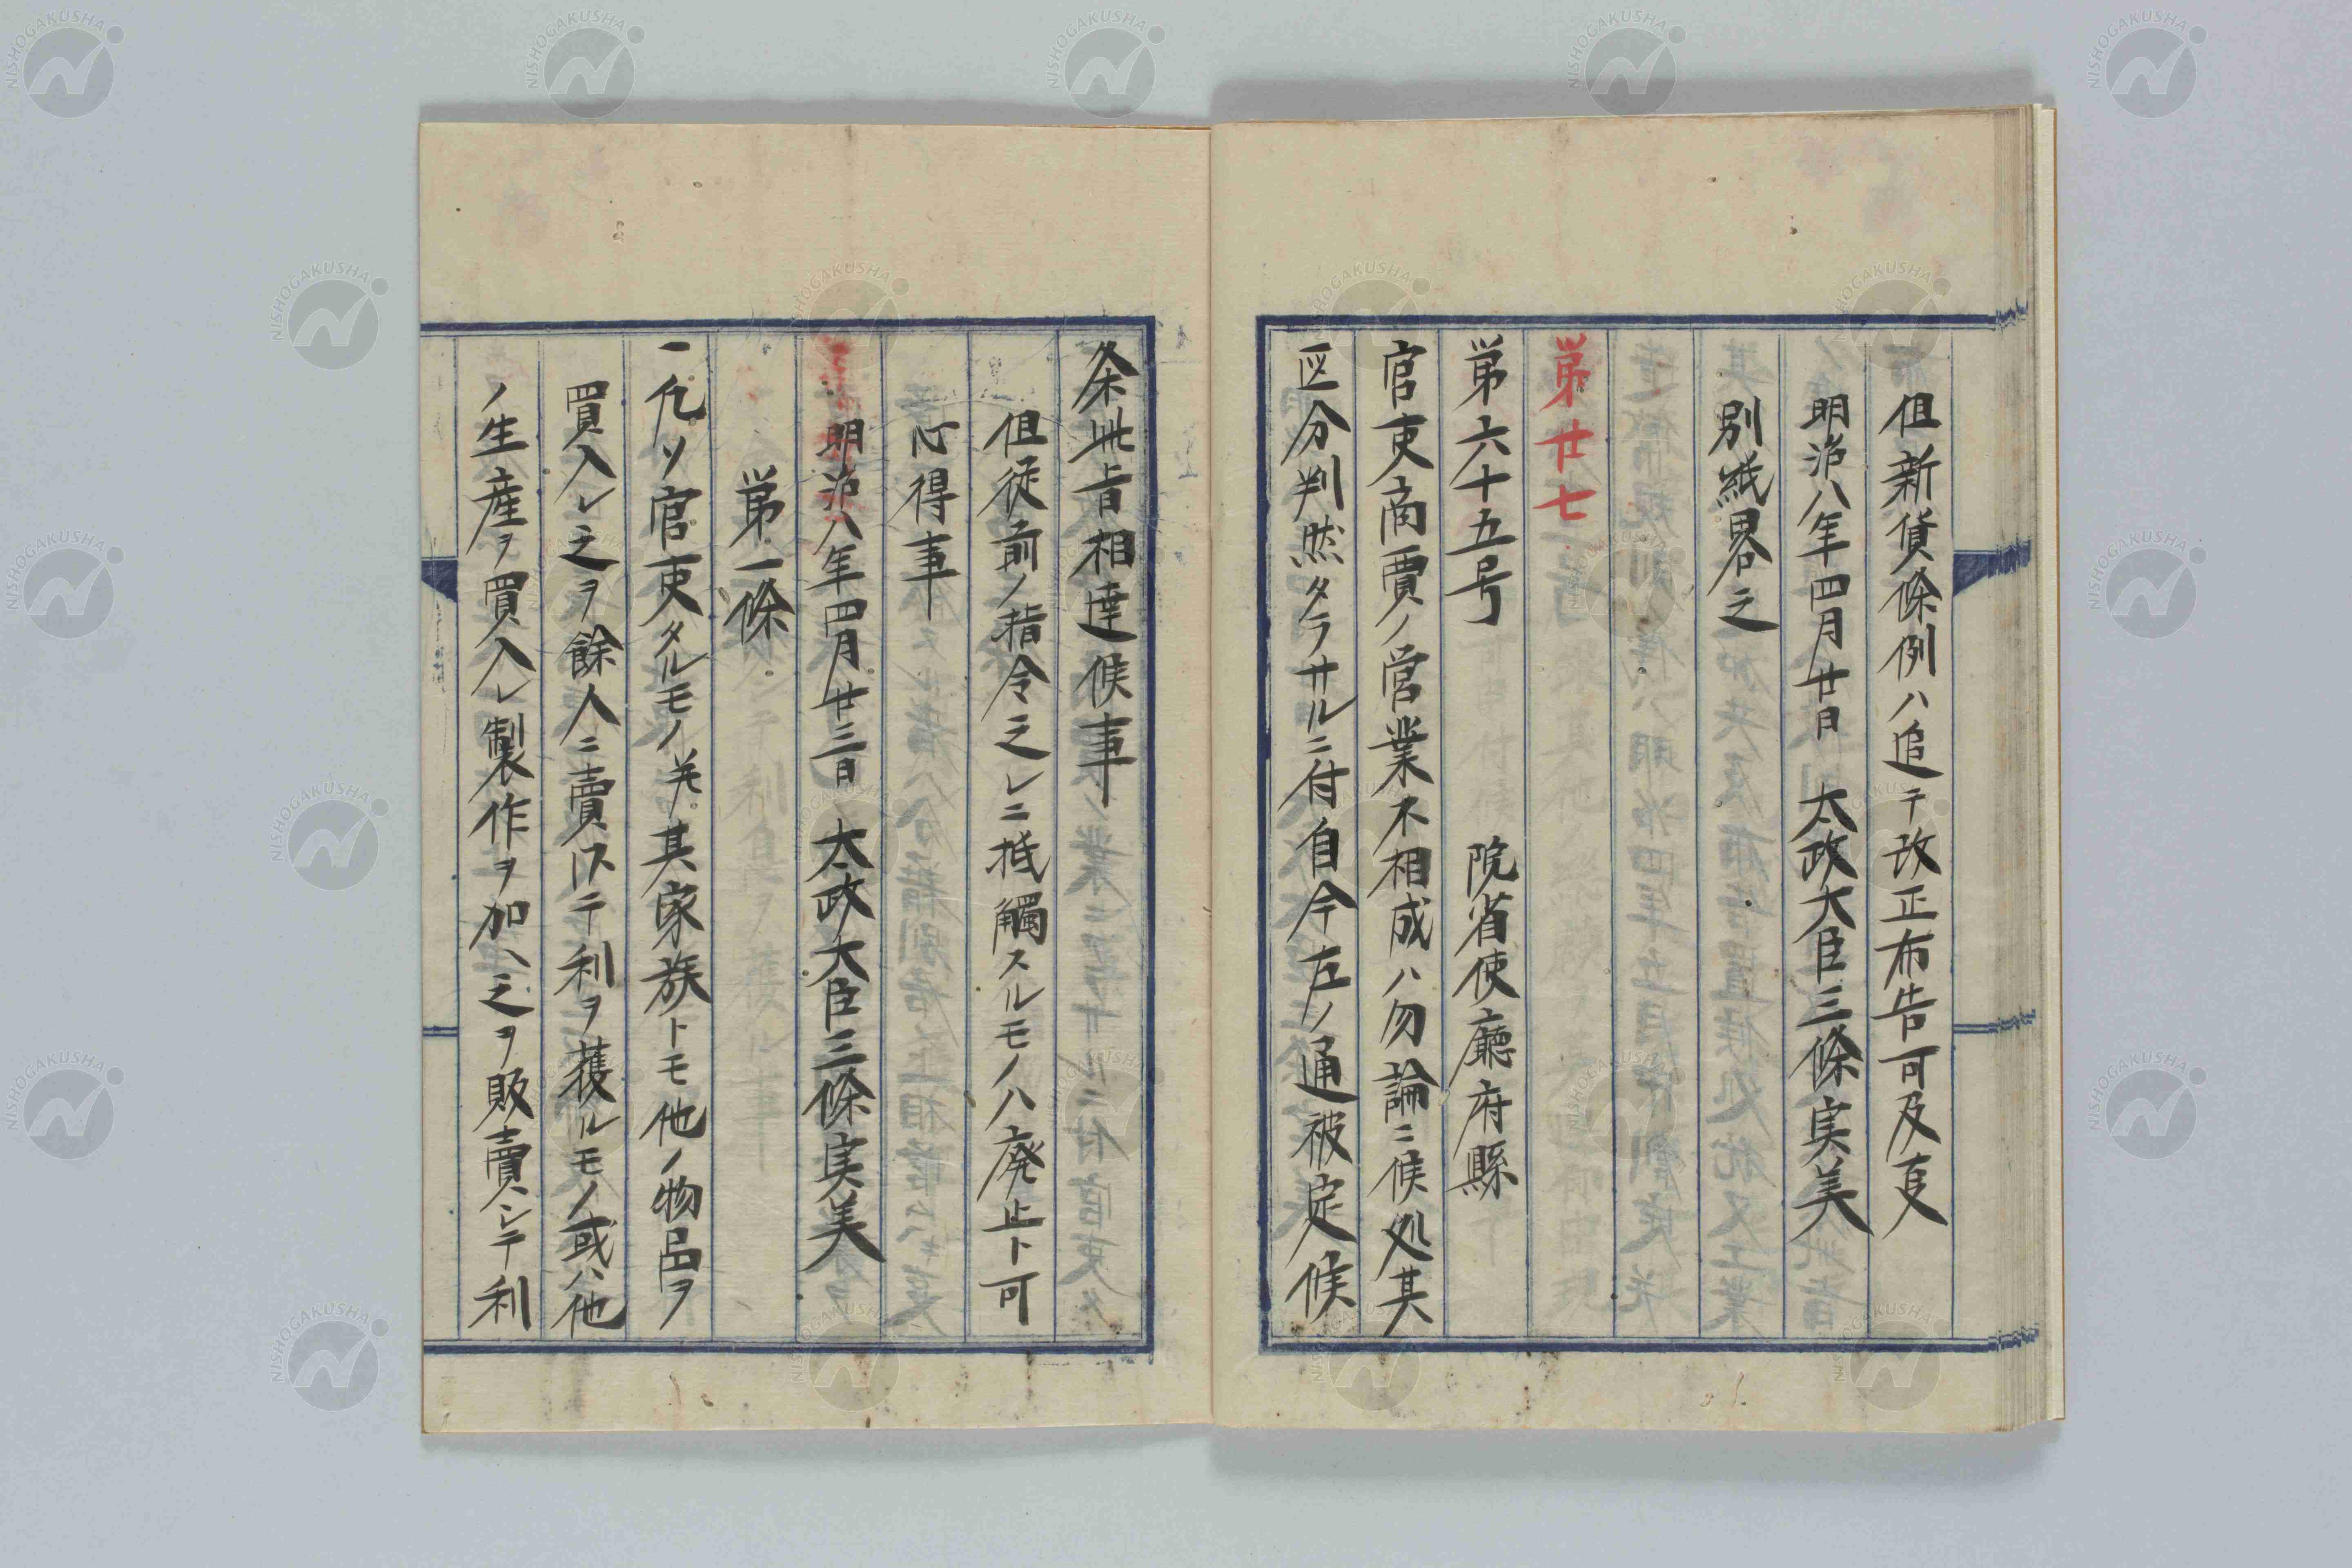 但新貨條例ハ追テ改正布告可及㕝
明治八年四月廿日　太政大臣三條実美
別紙畧之
第廿七
第六十五号　院省使廳府縣
官吏商賈ノ営業不相成ハ勿論ニ候処其
区分判然タラサルニ付自今左ノ通被定候
条此旨相達候事
但従前ノ指令之レニ抵觸スルモノハ廃止ト可
心得事
明治八年四月廿三日　太政大臣三條実美
第一條
一凢ソ官吏タルモノ并其家族トモ他ノ物品ヲ
買入レ之ヲ餘人ニ賣リテ利ヲ獲ルモノ或ハ他
ノ生産ヲ買入レ製作ヲ加ヘ之ヲ販賣シテ利
NISHOGAKUSHA